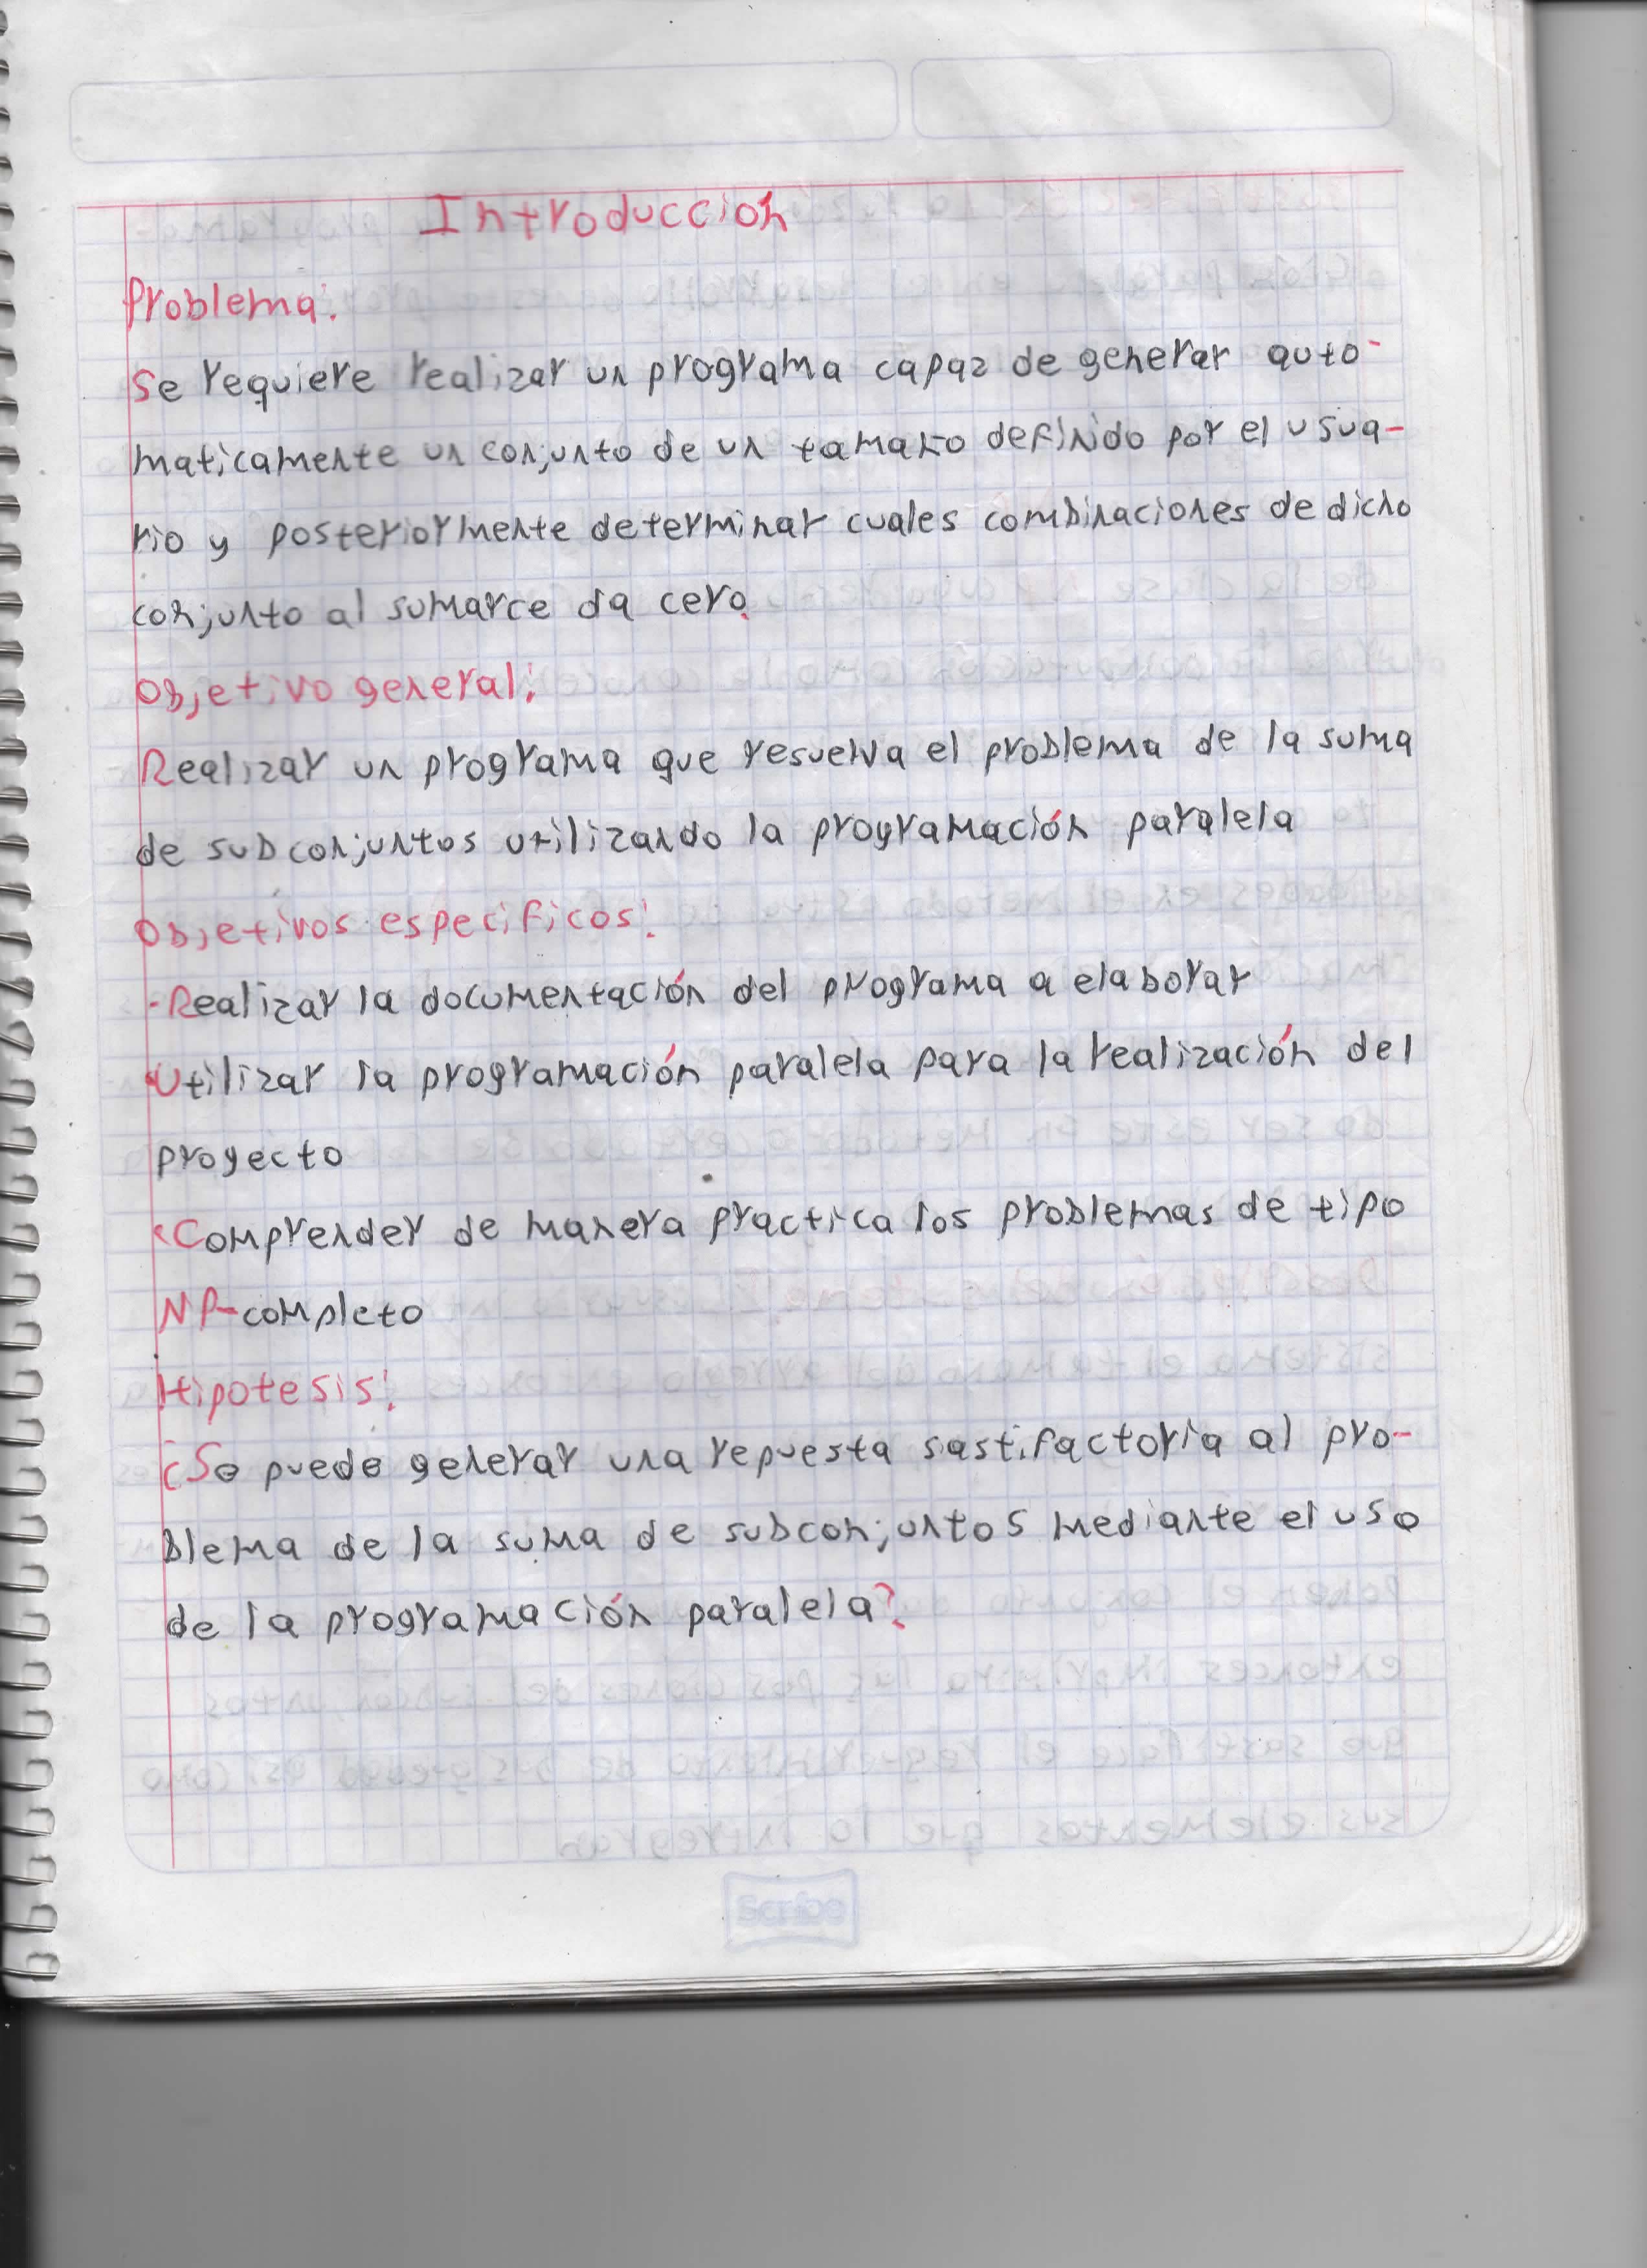 Introducción
Problema:
Se requiere realizar un programa capaz de generar auto-
maticamente un conjunto de un tamaño definido por el usua-
rio y posteriormente determinar cuales combinaciones de dicho
conjunto al sumarce da cero.
Objetivo general:
Realizar un programa que resuelva el problema de la suma
de subconjuntos utilizando la programación paralela
Objetivos especificos:
-Realizar la documentación del programa a elaborar
-Utilizar la programación paralela para la realización del
proyecto
-Comprender de manera practica los problemas de tipo
NP-completo
Hipotesis:
¿Se puede generar una repuesta sastifactoria al pro-
blema de la suma de subconjuntos mediante el uso
de la programación paralela?
Scribe